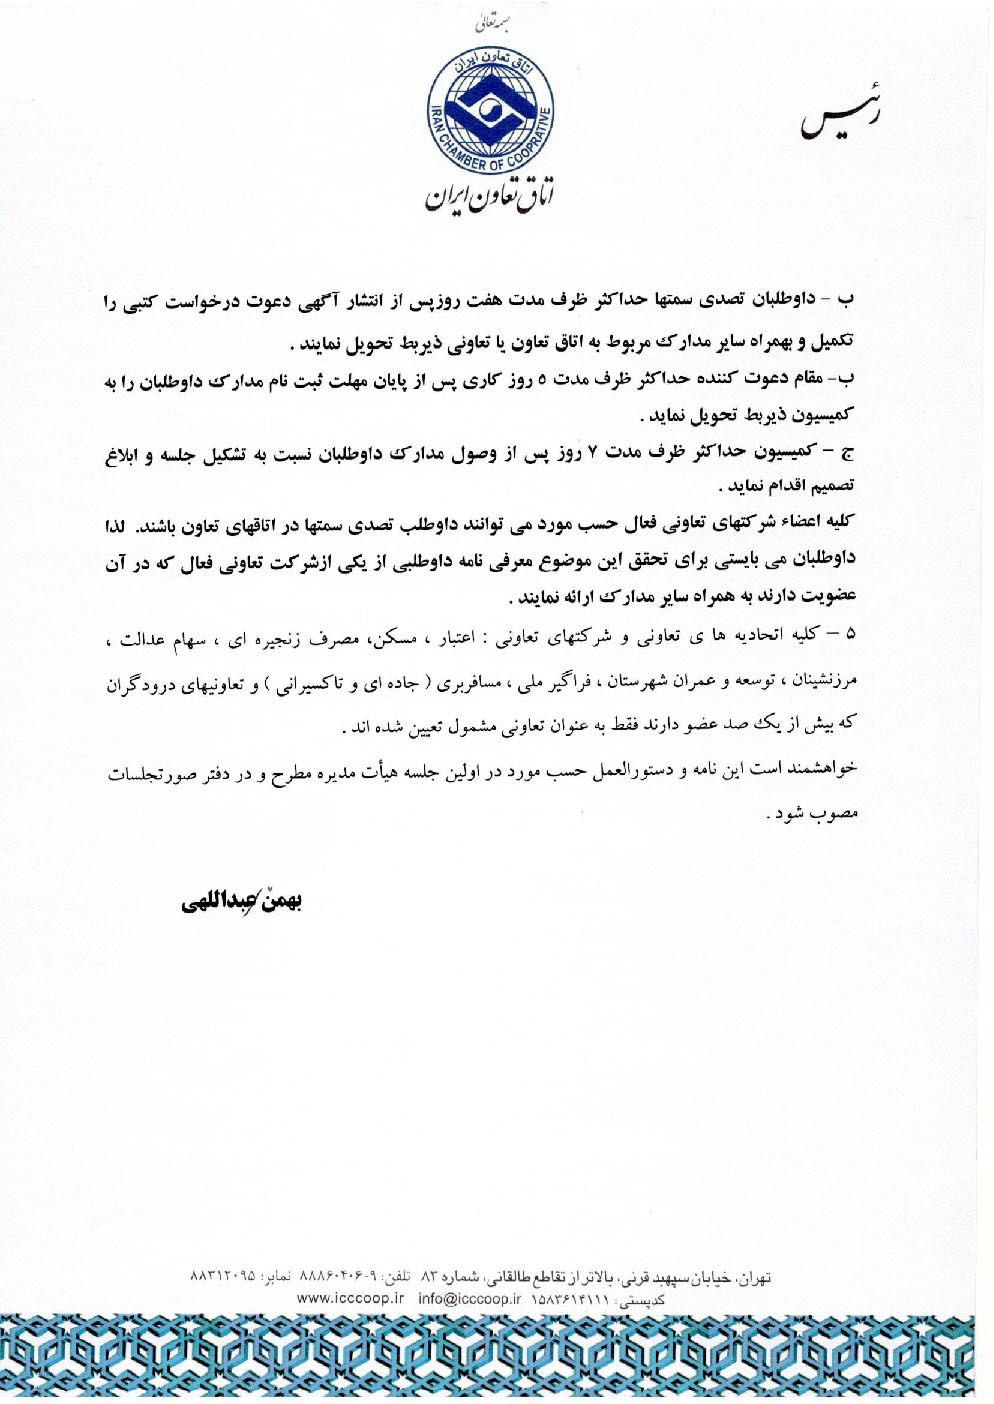 بسمه تعالی
اتاق تعاون ایران
IRAN CHAMBER OF COOPRATIVE
رئیس
اتاق تعاون ایران
ب - داوطلبان تصدی سمتها حداکثر ظرف مدت هفت روزپس از انتشار آگهی دعوت درخواست کتبی را
تکمیل و بهمراه سایر مدارک مربوط به اتاق تعاون یا تعاونی ذیربط تحویل نمایند .
ب- مقام دعوت کننده حداکثر ظرف مدت ۵ روز کاری پس از پایان مهلت ثبت نام مدارک داوطلبان را به
کمیسیون ذیربط تحویل نماید .
ج - کمیسیون حداکثر ظرف مدت ۷ روز پس از وصول مدارک داوطلبان نسبت به تشکیل جلسه و ابلاغ
تصمیم اقدام نماید .
کلیه اعضاء شرکتهای تعاونی فعال حسب مورد می توانند داوطلب تصدی سمتها در اتاقهای تعاون باشند. لذا
داوطلبان می بایستی برای تحقق این موضوع معرفی نامه داوطلبی از یکی ازشرکت تعاونی فعال که در آن
عضویت دارند به همراه سایر مدارک ارائه نمایند .
۵ - کلیه اتحادیه ها ی تعاونی و شرکتهای تعاونی : اعتبار ، مسکن، مصرف زنجیره ای ، سهام عدالت ،
مرزنشینان ، توسعه و عمران شهرستان ، فراگیر ملی ، مسافربری ( جاده ای و تاکسیرانی ) و تعاونیهای درودگران
که بیش از یک صد عضو دارند فقط به عنوان تعاونی مشمول تعیین شده اند .
خواهشمند است این نامه و دستورالعمل حسب مورد در اولین جلسه هیأت مدیره مطرح و در دفتر صورتجلسات
مصوب شود .
بهمن عبداللهی
تهران، خیابان سپهبد قرنی، بالاتر از تقاطع طالقانی، شماره ۸۳ تلفن: ۹-۸۸۸۶۰۴۰۶ نمابر: ۸۸۳۱۲۰۹۵
کدپستی: ۱۵۸۳۶۱۴۱۱۱ info@icccoop.ir www.icccoop.ir